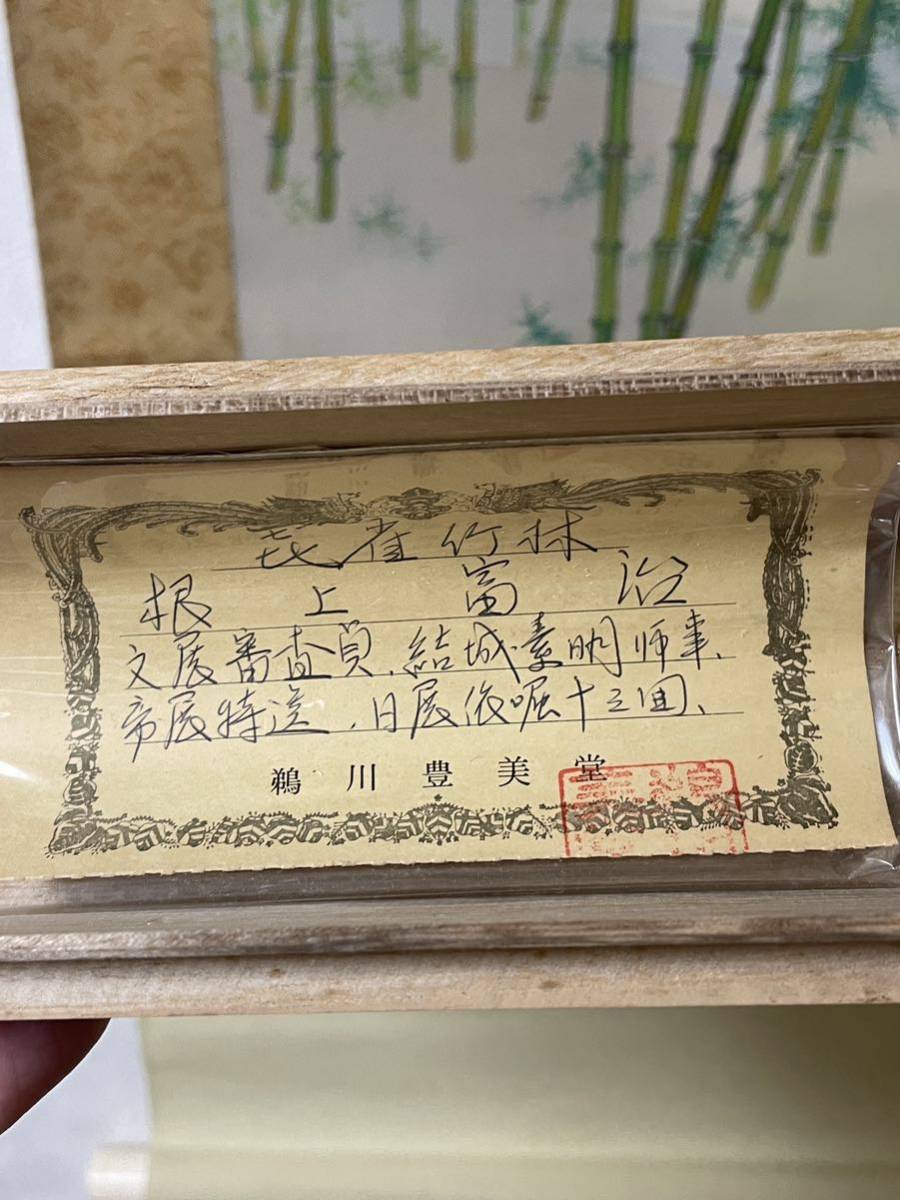 㐂雀竹林
根上富治
文展審査員、結城素明师事、
帝展特選、日展依嘱十三回、
鵜川豊美堂